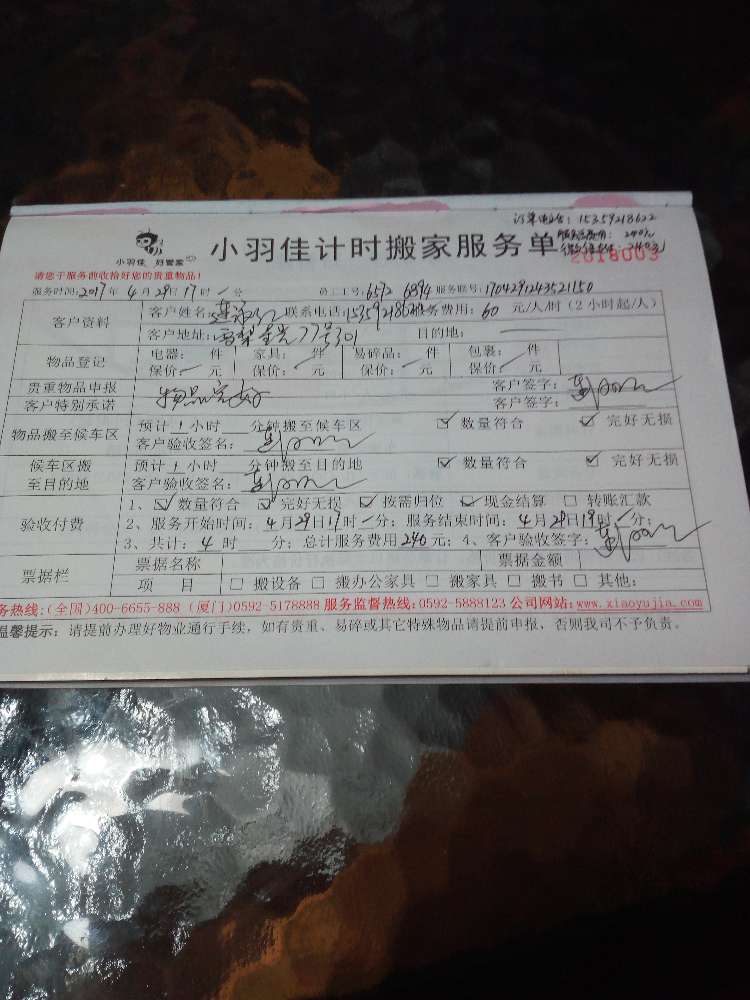 订单电话：15359218622
小羽佳 好管家
小羽佳计时搬家服务单
服务总费用：240元
2018003
请您于服务前收拾好您的贵重物品！
服务时间：2017年4月29日17时 分 员工工号：6592 6894 服务联号：1704291243521150
客户资料
客户姓名： 联系电话：15359218622 服务费用：60 元/人/时（2小时起/人）
客户地址： 77号301 目的地：
物品登记
电器： 件 家具： 件 易碎品： 件 包裹： 件
保价： 元 保价： 元 保价： 元 保价 元
贵重物品申报 物品完好 客户签字：
客户特别承诺 客户签字：
物品搬至候车区
预计1小时 分钟搬至候车区 ☑ 数量符合 ☑ 完好无损
客户验收签名：
候车区搬至目的地
预计1小时 分钟搬至目的地 ☑ 数量符合 ☑ 完好无损
客户验收签名：
验收付费
1、☑ 数量符合 ☑ 完好无损 ☑ 按需归位 ☑ 现金结算 □ 转账汇款
2、服务开始时间：4月29日17时 分；服务结束时间：4月29日19时 分；
3、共计：4时 分；总计服务费用240元；4、客户验收签字：
票据栏
票据名称 票据金额
项 目 □ 搬设备 □ 搬办公家具 □ 搬家具 □ 搬书 □ 其他：
务热线：(全国)400-6655-888 (厦门)0592-5178888 服务监督热线：0592-5888123 公司网站：www.xiaoyujia.com
温馨提示：请提前办理好物业通行手续，如有贵重、易碎或其它特殊物品请提前申报、否则我司不予负责。